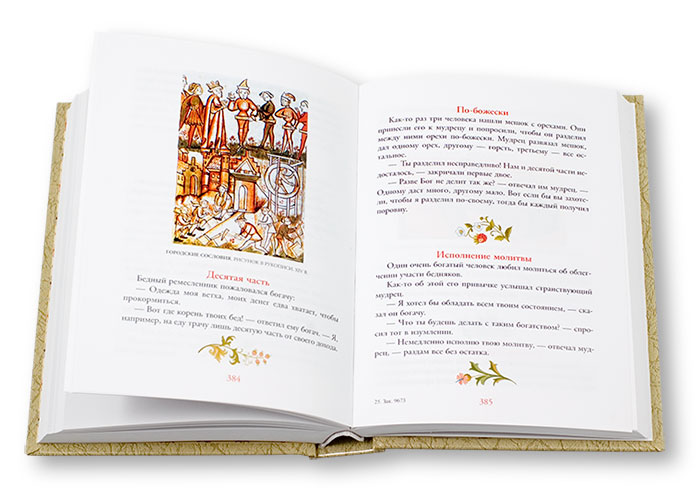 ГОРОДСКИЕ СОСЛОВИЯ. РИСУНОК В РУКОПИСИ. XIV В.
Десятая часть
Бедный ремесленник пожаловался богачу:
— Одежда моя ветха, моих денег едва хватает, чтобы
прокормиться.
— Вот где корень твоих бед! — ответил ему богач. — Я,
например, на еду трачу лишь десятую часть от своего дохода.
384
По-божески
Как-то раз три человека нашли мешок с орехами. Они
принесли его к мудрецу и попросили, чтобы он разделил
между ними орехи по-божески. Мудрец развязал мешок,
дал одному орех, другому — горсть, третьему — все ос-
тальное.
— Ты разделил несправедливо! Нам и десятой части не-
досталось, — закричали первые двое.
— Разве Бог не делит так же? — отвечал им мудрец, —
Одному даст много, другому мало. Вот если бы вы захоте-
ли, чтобы я разделил по-своему, тогда бы каждый получил
поровну.
Исполнение молитвы
Один очень богатый человек любил молиться об облег-
чении участи бедняков.
Как-то об этой его привычке услышал странствующий
мудрец.
— Я хотел бы обладать всем твоим состоянием, — ска-
зал он богачу.
— Что ты будешь делать с таким богатством? — спро-
сил тот в изумлении.
— Немедленно исполню твою молитву, — отвечал муд-
рец, — раздам все без остатка.
25. Зак. 9673
385